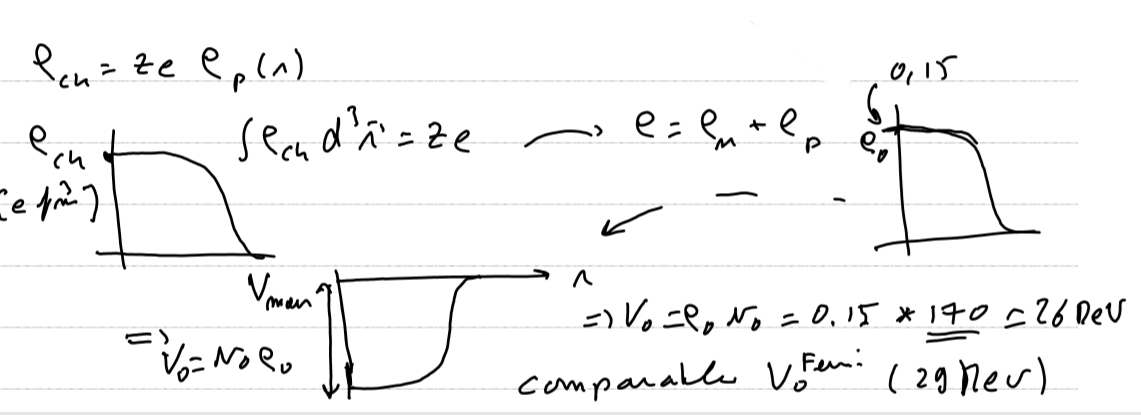 ρch = Ze ρp(r)
0,15
ρch
∫ρch d³r̄ = Ze → ρ = ρn + ρp
ρ0
[e fm⁻³]
Vmean
r
⇒ V0 = N0 ρ0
⇒ V0 = ρ0 N0 = 0.15 * 170 = 26 MeV
comparable V0 Fermi (29 MeV)